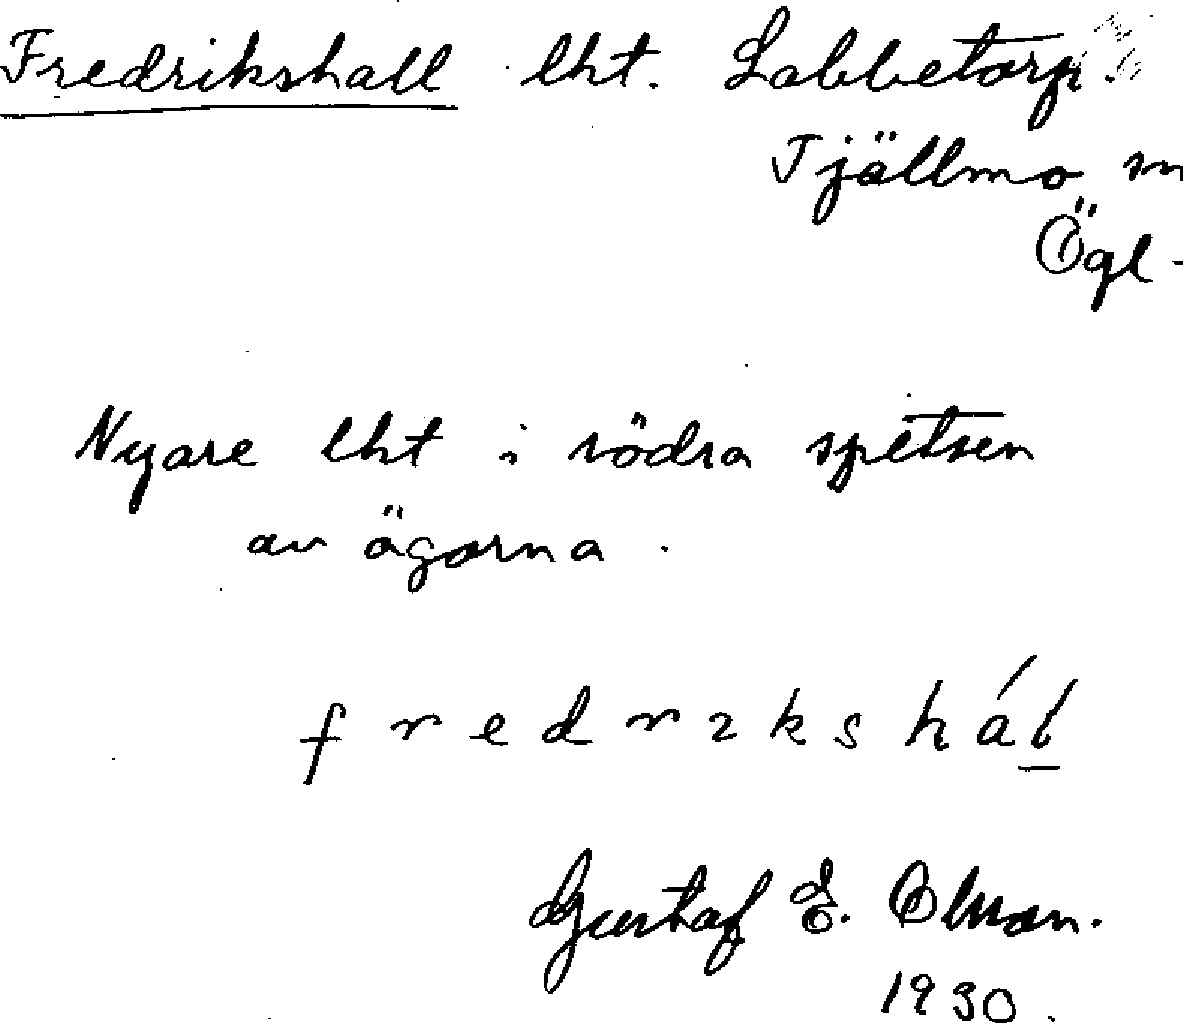 Fredrikshall lht. Labbetorp.
Tjällmo sn
Ögl.
Nyare lht i södra spetsen
av ägorna.
fredrikshál
Gustaf E. Olsson.
1930.